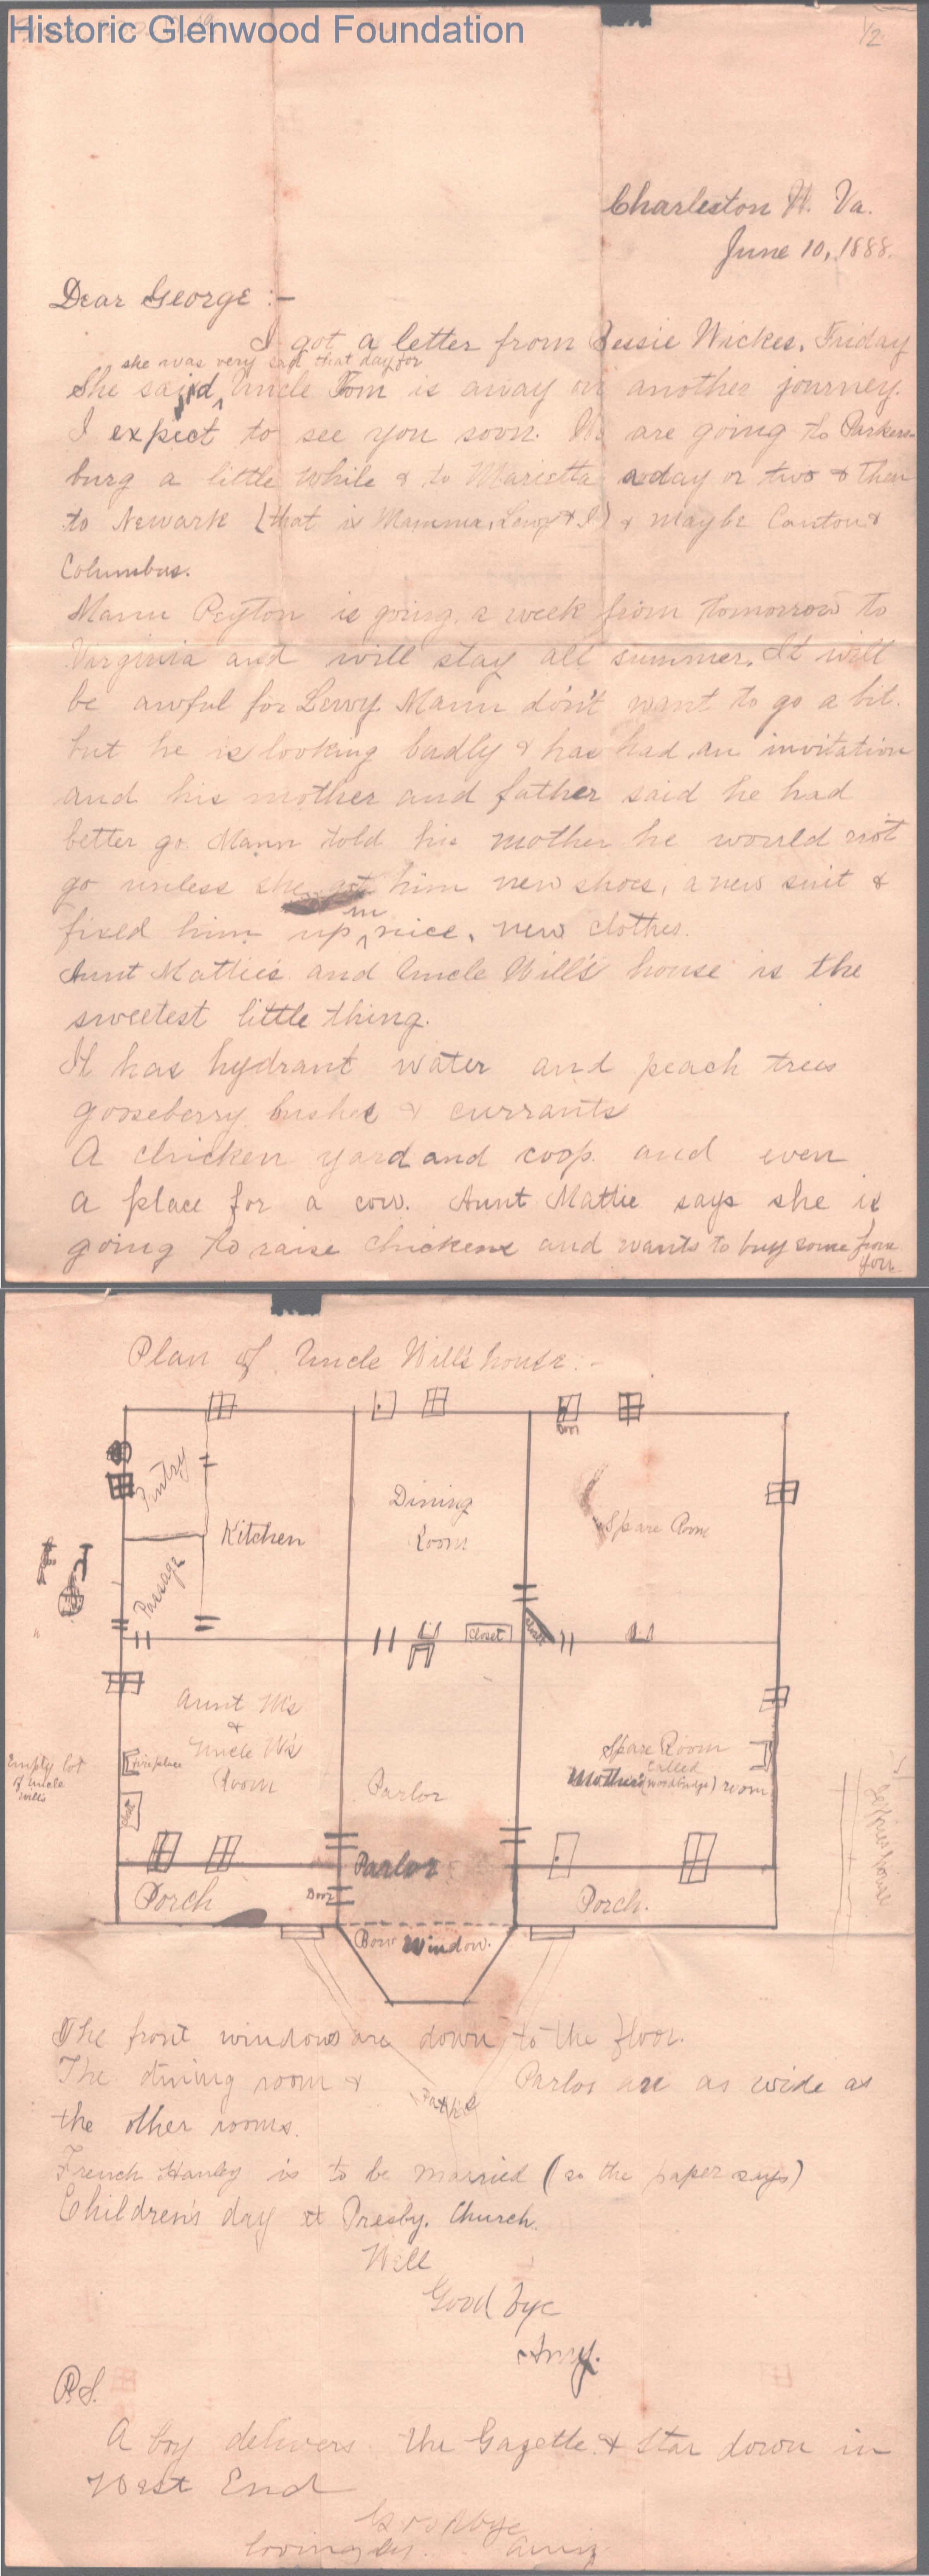 Historic Glenwood Foundation
1/2
Charleston W. Va.
June 10, 1888.
Dear George :-
I got a letter from Bessie Wickes. Friday
she was very sad that day for
She said, Uncle Tom is away on another journey.
I expect to see you soon. We are going to Parkers-
burg a little while & to Marietta a day or two & then
to Newark (that is Mamma, Lewy & I) & maybe Canton &
Columbus.
Mann Peyton is going a week from tomorrow to
Virginia and will stay all summer. It will
be awful for Lewy. Mann don't want to go a bit.
but he is looking badly & has had an invitation
and his mother and father said he had
better go. Mann told his mother he would not
go unless she got him new shoes, a new suit &
in
fixed him up nice, new clothes.
Aunt Mattie's and Uncle Will's house is the
sweetest little thing.
It has hydrant water and peach trees
gooseberry bushes & currants
A chicken yard and coop and even
a place for a cow. Aunt Mattie says she is
going to raise chickens and wants to buy some from
you.
Plan of Uncle Will's house.-
Door
Pintry
Dining
Room
Spare Room
Kitchen
Passage
Closet
Closet
Aunt M's
&
Uncle W's
Room
Spare Room
Called
Mother's (Woodbridge) room
Empty lot
of Uncle
Will's
Fireplace
Parlor
Parlor
Porch
Door
Porch.
Bow Window.
The front windows are down to the floor.
The dining room & Parlor are as wide as
Paths
the other rooms.
French Hanley is to be married (so the paper says)
Children's day at Presby. Church.
Well
Good bye
Amy.
P.S.
A boy delivers the Gazette & Star down in
West End
Goodbye
Lovingly. Amy